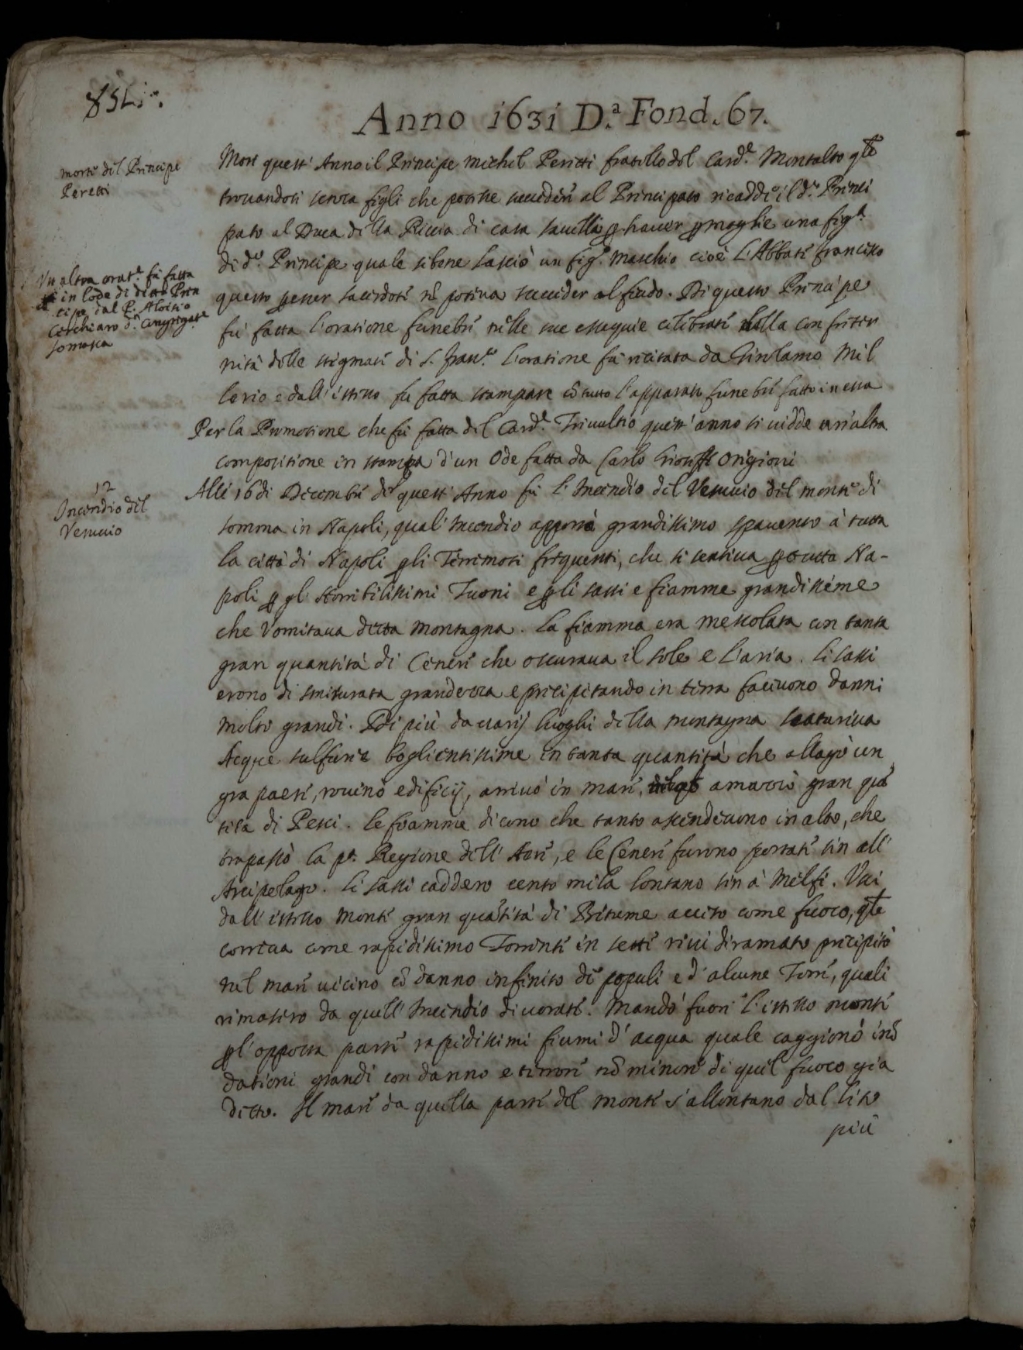 Anno 1631 D.ª Fond. 67.
morte del Principe
Peretti
Morì quest' Anno il Principe Michel Peretti fratello del Card.e Montalto qle
trovandosi senza figli che potesse succedere al Principato ricadde il d.º Princi
pato al Duca della Riccia di casa Savelli p haver p moglie una fig.a
di d.º Principe quale sibene lasciò un fig.º Maschio cioè l'Abbate Francesco
questo p esser sacerdote nõ poteva succeder al feudo. Di questo Principe
fù fatta l'oratione funebre nelle sue essequie celebrate dalla Confrater
nità delle stigmate di S. Fran.co l'oratione fù recitata da Girolamo Mil
lorio e dall'istesso fù fatta stampare cõ tutto l'apparato funebre fatto in essa
Un altra orat.e fù fatta
in lode di detto Prin
cipe dal P. Aloisio
Cerchiaro d.a Congregat.e
Somasca
Per la Promotione che fù fatta del Card.e Trivultio quest' anno si vidde un'altra
compositione in stampa d'un Ode fatta da Carlo Gioseffe Origioni
12
Incendio del
Vesuvio
Alli 16 di Decembre di quest' Anno fù l'Incendio del Vesuvio del monte di
Somma in Napoli, qual' Incendio apportò grandissimo spavento à tutta
la città di Napoli p gli Terremoti frequenti, che si sentiva p tutta Na-
poli p gl' Horribilissimi Tuoni e p li sassi e fiamme grandissime
che Vomitava detta Montagna. La fiamma era mescolata con tanta
gran quantità di Cenere che oscurava il sole e l'aria. Li sassi
erono di smisurata grandezza e precipitando in terra facevono danni
molto grandi. Di più da varij luoghi della montagna scaturiva
Acque sulfuree boglientissime in tanta quantità che allagò un
gra paese, rovinò edificij, arrivò in mare, amazzò gran quã
tità di Pesci. Le fiamme dicono che tanto ascendevono in alto, che
trapassò la p.ª Regione dell'Aere, e le Cenere furono portate sin all'
Arcipelago. Li sassi caddero cento mila lontano sin à Melfi. Uscì
dall'istesso Monte gran quãtità di Bitume acceso come fuoco, qle
correva come rapidissimo Torrente in sette rivi diramato precipitò
nel mare vicino cõ danno infinito di populi e d'alcune Terre, quali
rimasero da quell' Incendio divorate. Mandò fuori l'istesso monte
p l'opposta parte rapidissimi fiumi d'acqua quale caggionò inõ
dationi grandi con danno e terrore nõ minore di quel fuoco già
detto. Il mare da quella parte del monte s'allontano dal lito
più